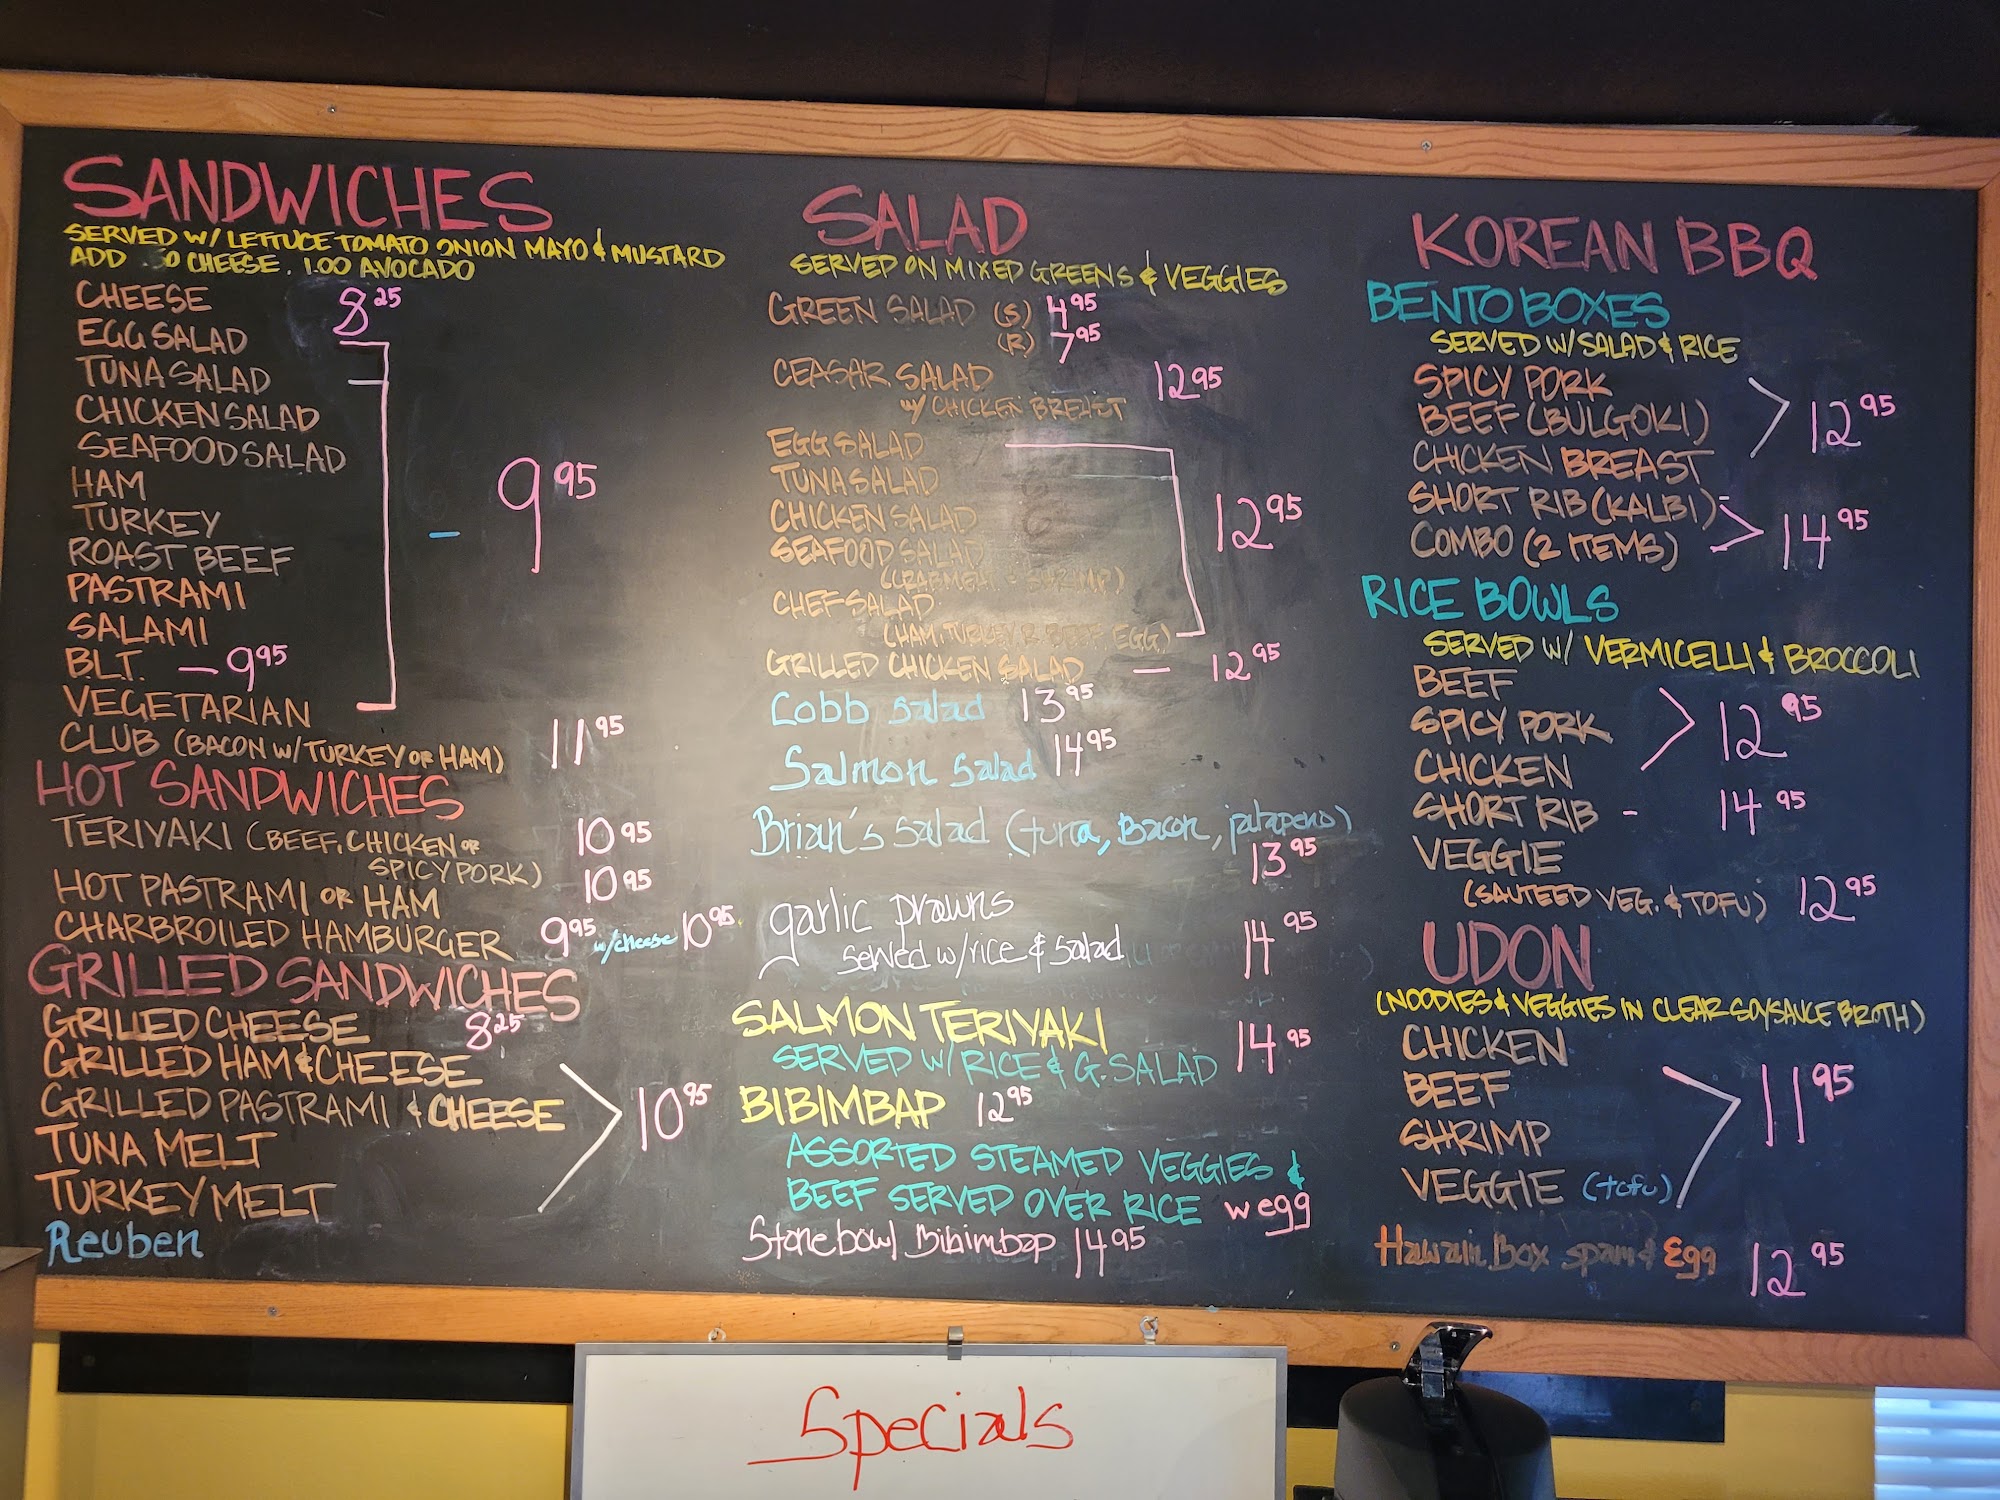 SANDWICHES
SERVED W/ LETTUCE TOMATO ONION MAYO & MUSTARD
ADD .50 CHEESE. 1.00 AVOCADO
CHEESE 8.25
EGG SALAD
TUNA SALAD
CHICKEN SALAD
SEAFOOD SALAD
HAM
TURKEY
ROAST BEEF
PASTRAMI
SALAMI
B.L.T. - 9.95
VEGETARIAN
- 9.95
CLUB (BACON W/ TURKEY OR HAM) 11.95
HOT SANDWICHES
TERIYAKI (BEEF, CHICKEN OR 10.95
SPICY PORK)
HOT PASTRAMI OR HAM 10.95
CHARBROILED HAMBURGER 9.95 w/cheese 10.95
GRILLED SANDWICHES
GRILLED CHEESE 8.25
GRILLED HAM & CHEESE
GRILLED PASTRAMI & CHEESE
TUNA MELT
TURKEY MELT
10.95
Reuben
SALAD
SERVED ON MIXED GREENS & VEGGIES
GREEN SALAD (S) 4.95
(R) 7.95
CEASAR SALAD 12.95
W/ CHICKEN BREAST
EGG SALAD
TUNA SALAD
CHICKEN SALAD
SEAFOOD SALAD
(CRABMEAT & SHRIMP)
CHEF SALAD
(HAM, TURKEY R. BEEF, EGG)
12.95
GRILLED CHICKEN SALAD - 12.95
Cobb salad 13.95
Salmon salad 14.95
Brian's salad (tuna, Bacon, jalapeno)
13.95
garlic prawns
served w/rice & salad 14.95
SALMON TERIYAKI
SERVED W/ RICE & G. SALAD 14.95
BIBIMBAP 12.95
ASSORTED STEAMED VEGGIES &
BEEF SERVED OVER RICE w egg
Stonebowl Bibimbap 14.95
KOREAN BBQ
BENTO BOXES
SERVED W/ SALAD & RICE
SPICY PORK
BEEF (BULGOKI)
CHICKEN BREAST
12.95
SHORT RIB (KALBI)
COMBO (2 ITEMS)
14.95
RICE BOWLS
SERVED W/ VERMICELLI & BROCCOLI
BEEF
SPICY PORK
CHICKEN
12.95
SHORT RIB - 14.95
VEGGIE
(SAUTEED VEG. & TOFU) 12.95
UDON
(NOODLES & VEGGIES IN CLEAR SOYSAUCE BROTH)
CHICKEN
BEEF
SHRIMP
VEGGIE (tofu)
11.95
Hawaiin Box spam & Egg 12.95
Specials